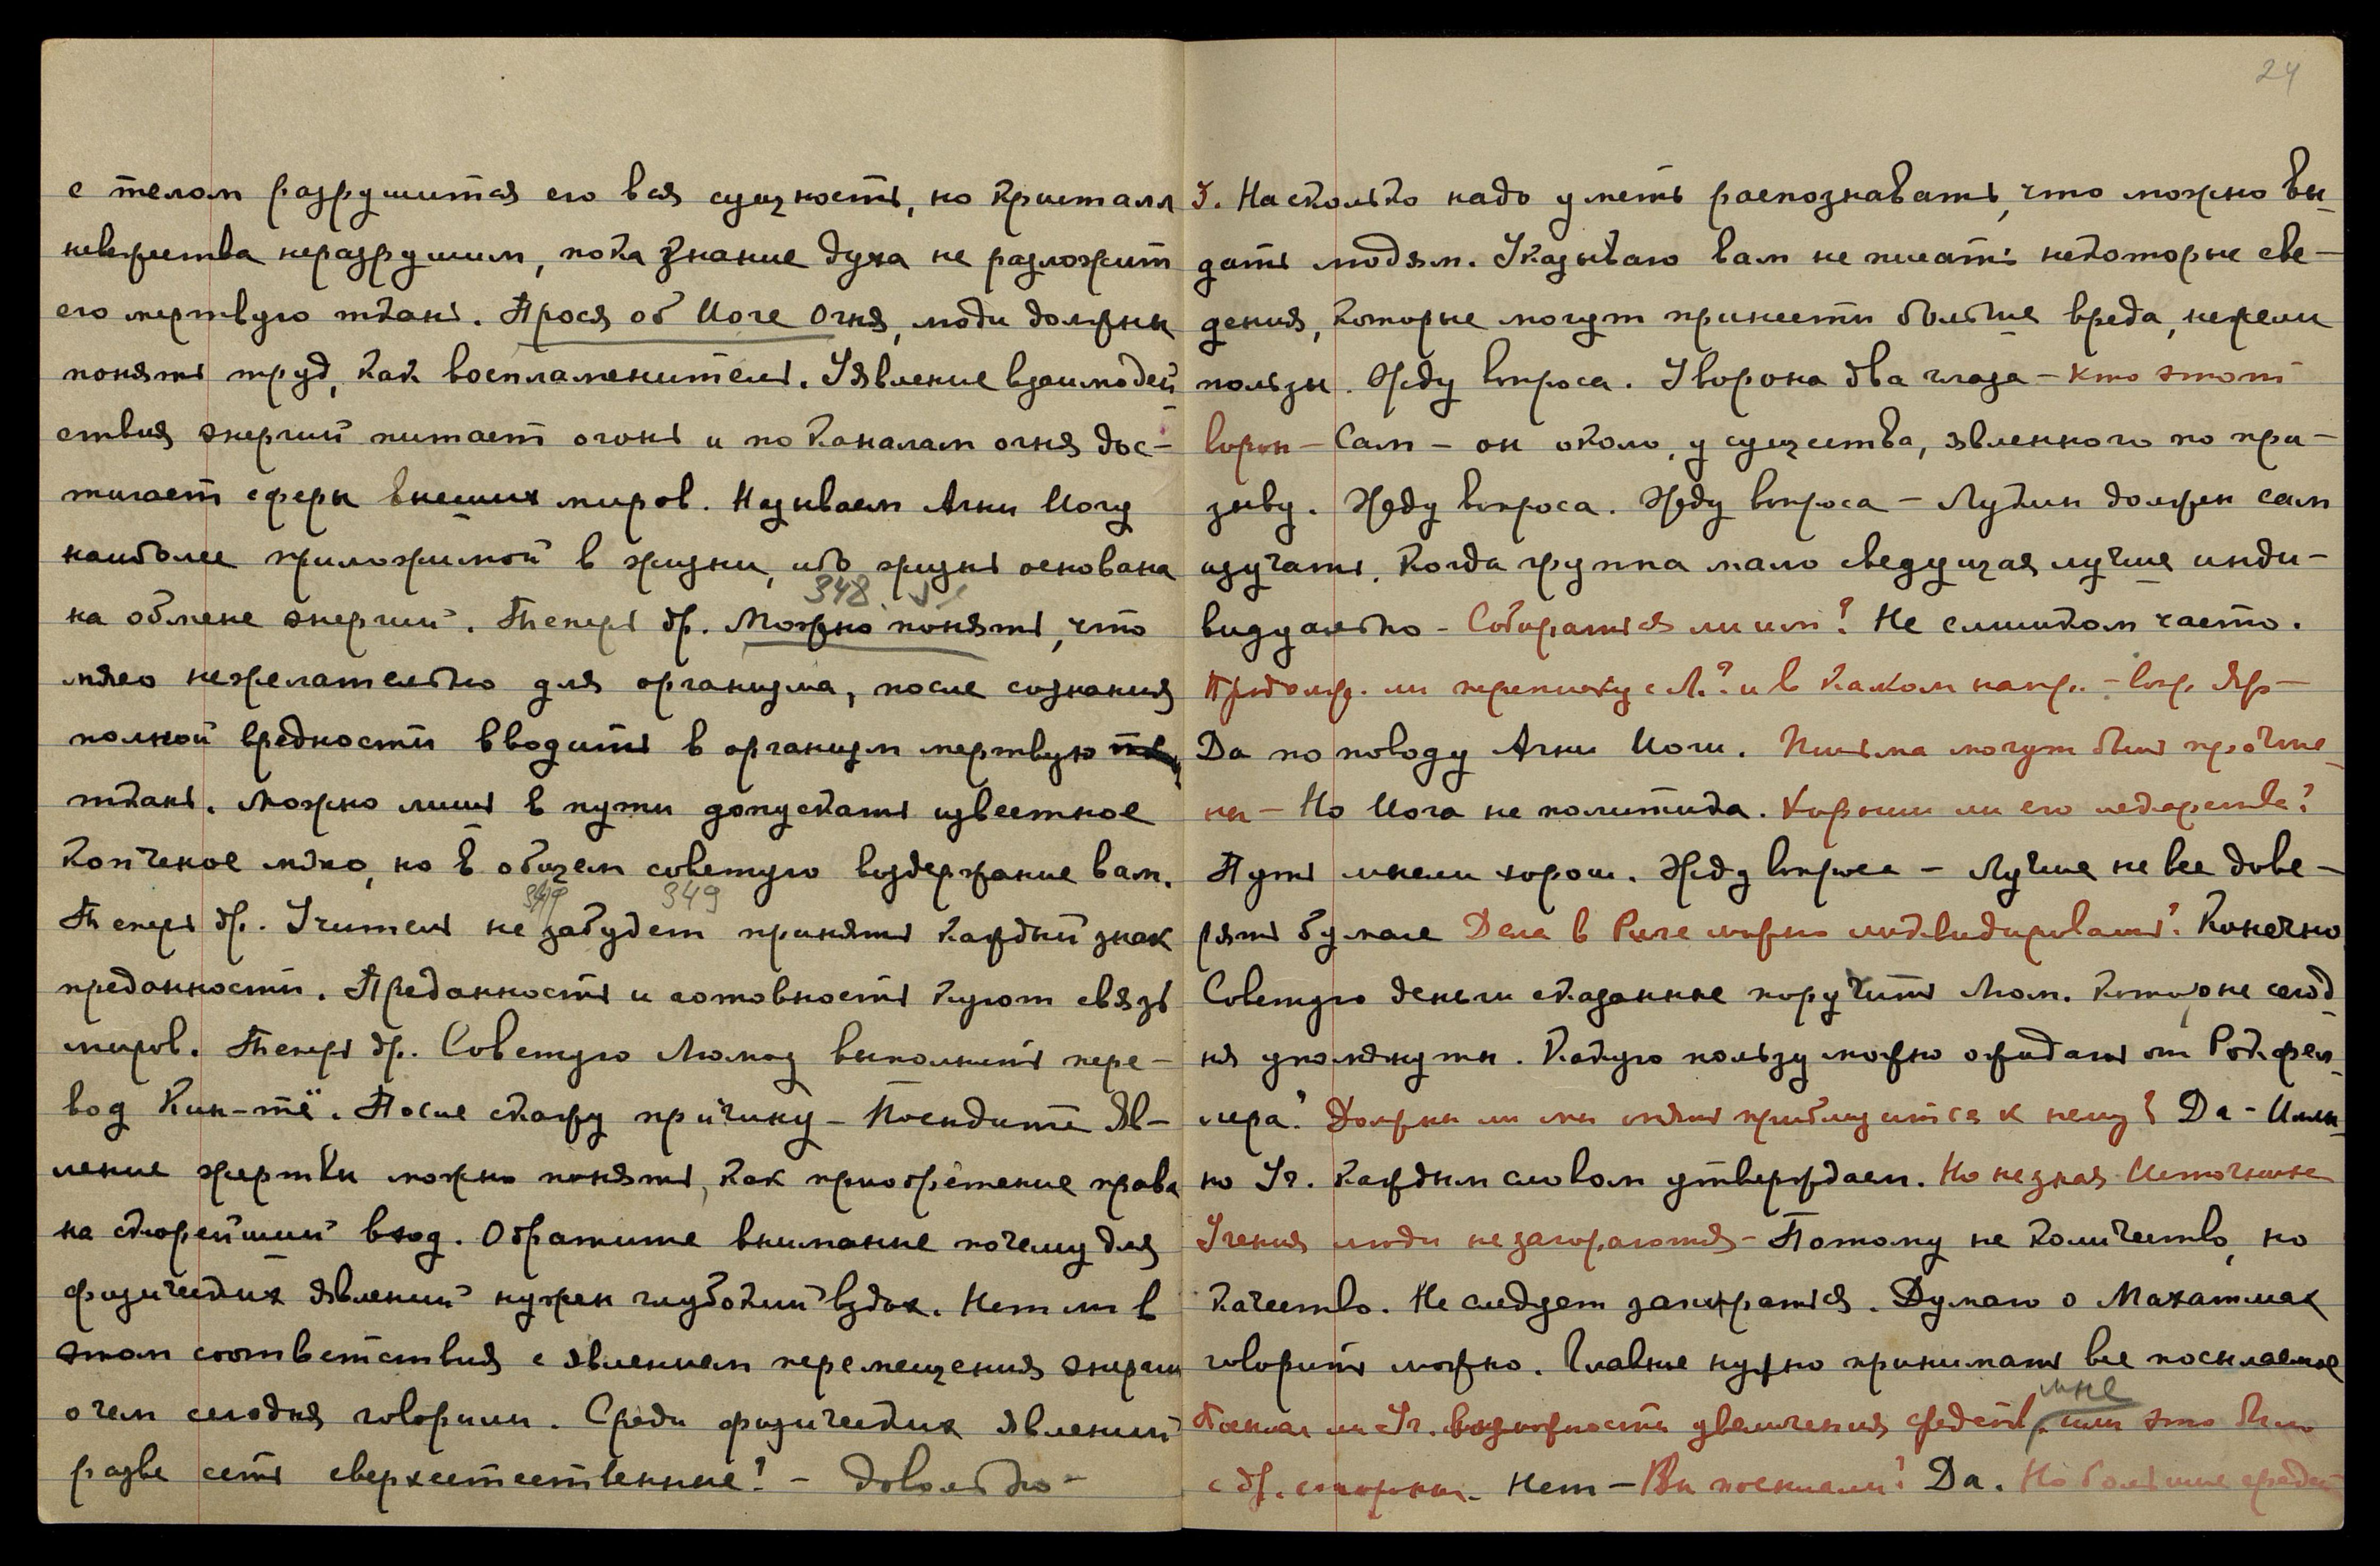 с телом разрушится его вся сущность, но кристалл
невежества неразрушим, пока знание духа не разложит
его мертвую ткань. Прося об Иоге Огня, люди должны
понять труд, как воспламенитель. Уявление взаимодей
ствия энергий питает огонь и по каналам огня дос-
тигает сферы внешних миров. Называем Агни Иогу
наиболее приложимой в жизни, ибо жизнь основана
348.
на обмене энергий. Теперь др. Можно понять, что
мясо нежелательно для организма, после сознания
полной вредности вводить в организм мертвую
ткань. Можно лишь в пути допускать известное
копченое мясо, но в общем советую воздержание вам.
349 349
Теперь др. Учитель не забудет принять каждый знак
преданности. Преданность и готовность куют связь
миров. Теперь др. Советую Люмоу выполнить пере-
вод Кин-тё. После скажу причину - Посидите Яв-
ление жертвы можно понять, как приобретение права
на скорейший вход. Обратите внимание почему для
физических явлений нужен глубокий вздох. Нет ли в
этом соответствия с явлением перемещения энергии
о чем сегодня говорили. Среди физических явлений
разве есть сверхестественные? - Довольно -
24
У. Насколько надо уметь распознавать, что можно вы-
дать людям. Указываю вам не писать некоторые све-
дения, которые могут принести больше вреда, нежели
пользы. Жду вопроса. У ворона два глаза - кто этот
ворон - Сам - он около, у существа, явленного по при-
зыву. Жду вопроса. Жду вопроса - Лукин должен сам
изучать. Когда группа мало сведущая лучше инди-
видуально - Собираться ли им? Не слишком часто.
Продолж. ли переписку с Л.? и в каком напр. - вопр. Яр -
Да по поводу Агни Иоги. Письма могут быть прочте-
ны - Но Иога не политика. Хороши ли его лекарства?
Путь мысли хорош. Жду вопроса - Лучше не все дове-
рять бумаге Дела в Риге можно ликвидировать? Конечно
Советую деньги сказанные поручить Люм. которые сегод-
ня упомянуты. Какую пользу можно ожидать от Рокфел-
лера? Должны ли мы опять приблизиться к нему? Да - Имен-
но Уч. каждым словом утверждаем. Но не зная Источника
Учения люди не загораются - Потому не количество, но
качество. Не следует запираться. Думаю о Махатмах
говорить можно. Главное нужно принимать все посылаемое
мне
Посылал ли Уч. возможности увеличения средств, или это было
с др. стороны. Нет - Вы посылали? Да. Но большие средст